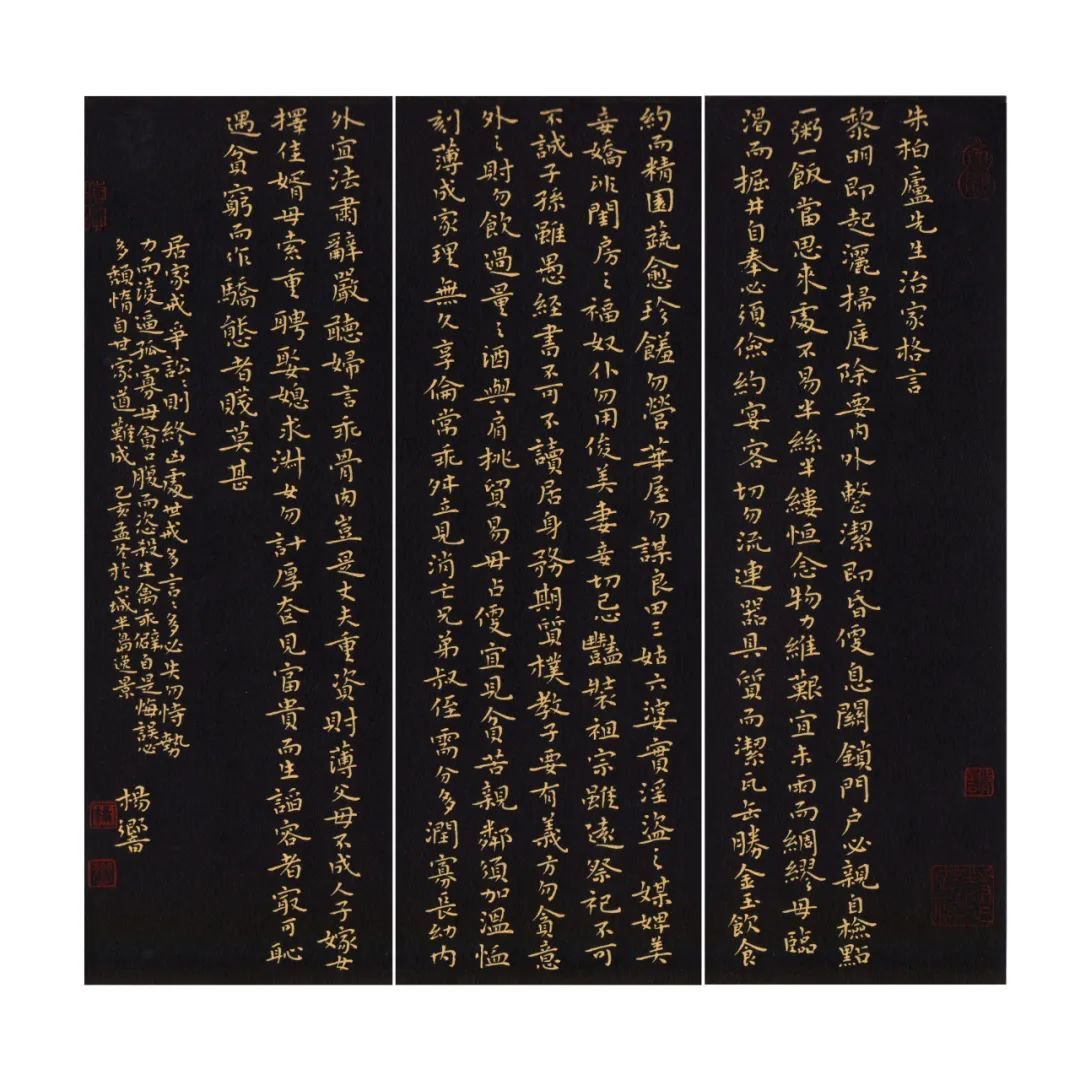 朱柏廬先生治家格言
黎明即起灑掃庭除要內外整潔即昏便息關鎖門户必親自檢點
一粥一飯當思來處不易半絲半縷恒念物力維艱宜未雨而綢繆毋臨
渴而掘井自奉必須儉約宴客切勿流連器具質而潔瓦缶勝金玉飲食
約而精園蔬愈珍饈勿營華屋勿謀良田三姑六婆實淫盜之媒婢美
妾嬌非閨房之福奴仆勿用俊美妻妾切忌豔裝祖宗雖遠祭祀不可
不誠子孫雖愚經書不可不讀居身務期質樸教子要有義方勿貪意
外之財勿飲過量之酒與肩挑貿易毋占便宜見貧苦親鄰須加溫恤
刻薄成家理無久享倫常乖舛立見消亡兄弟叔侄需分多潤寡長幼內
外宜法肅辭嚴聽婦言乖骨肉豈是丈夫重資財薄父母不成人子嫁女
擇佳婿毋索重聘娶媳求淑女勿計厚奩見富貴而生諂容者最可恥
遇貧窮而作驕態者賤莫甚
居家戒爭訟訟則終凶處世戒多言言多必失勿恃勢
力而淩逼孤寡毋貪口腹而恣殺生禽乖僻自是悔誤必
多頹惰自甘家道難成 己亥孟冬於山城半島逸景
楊響